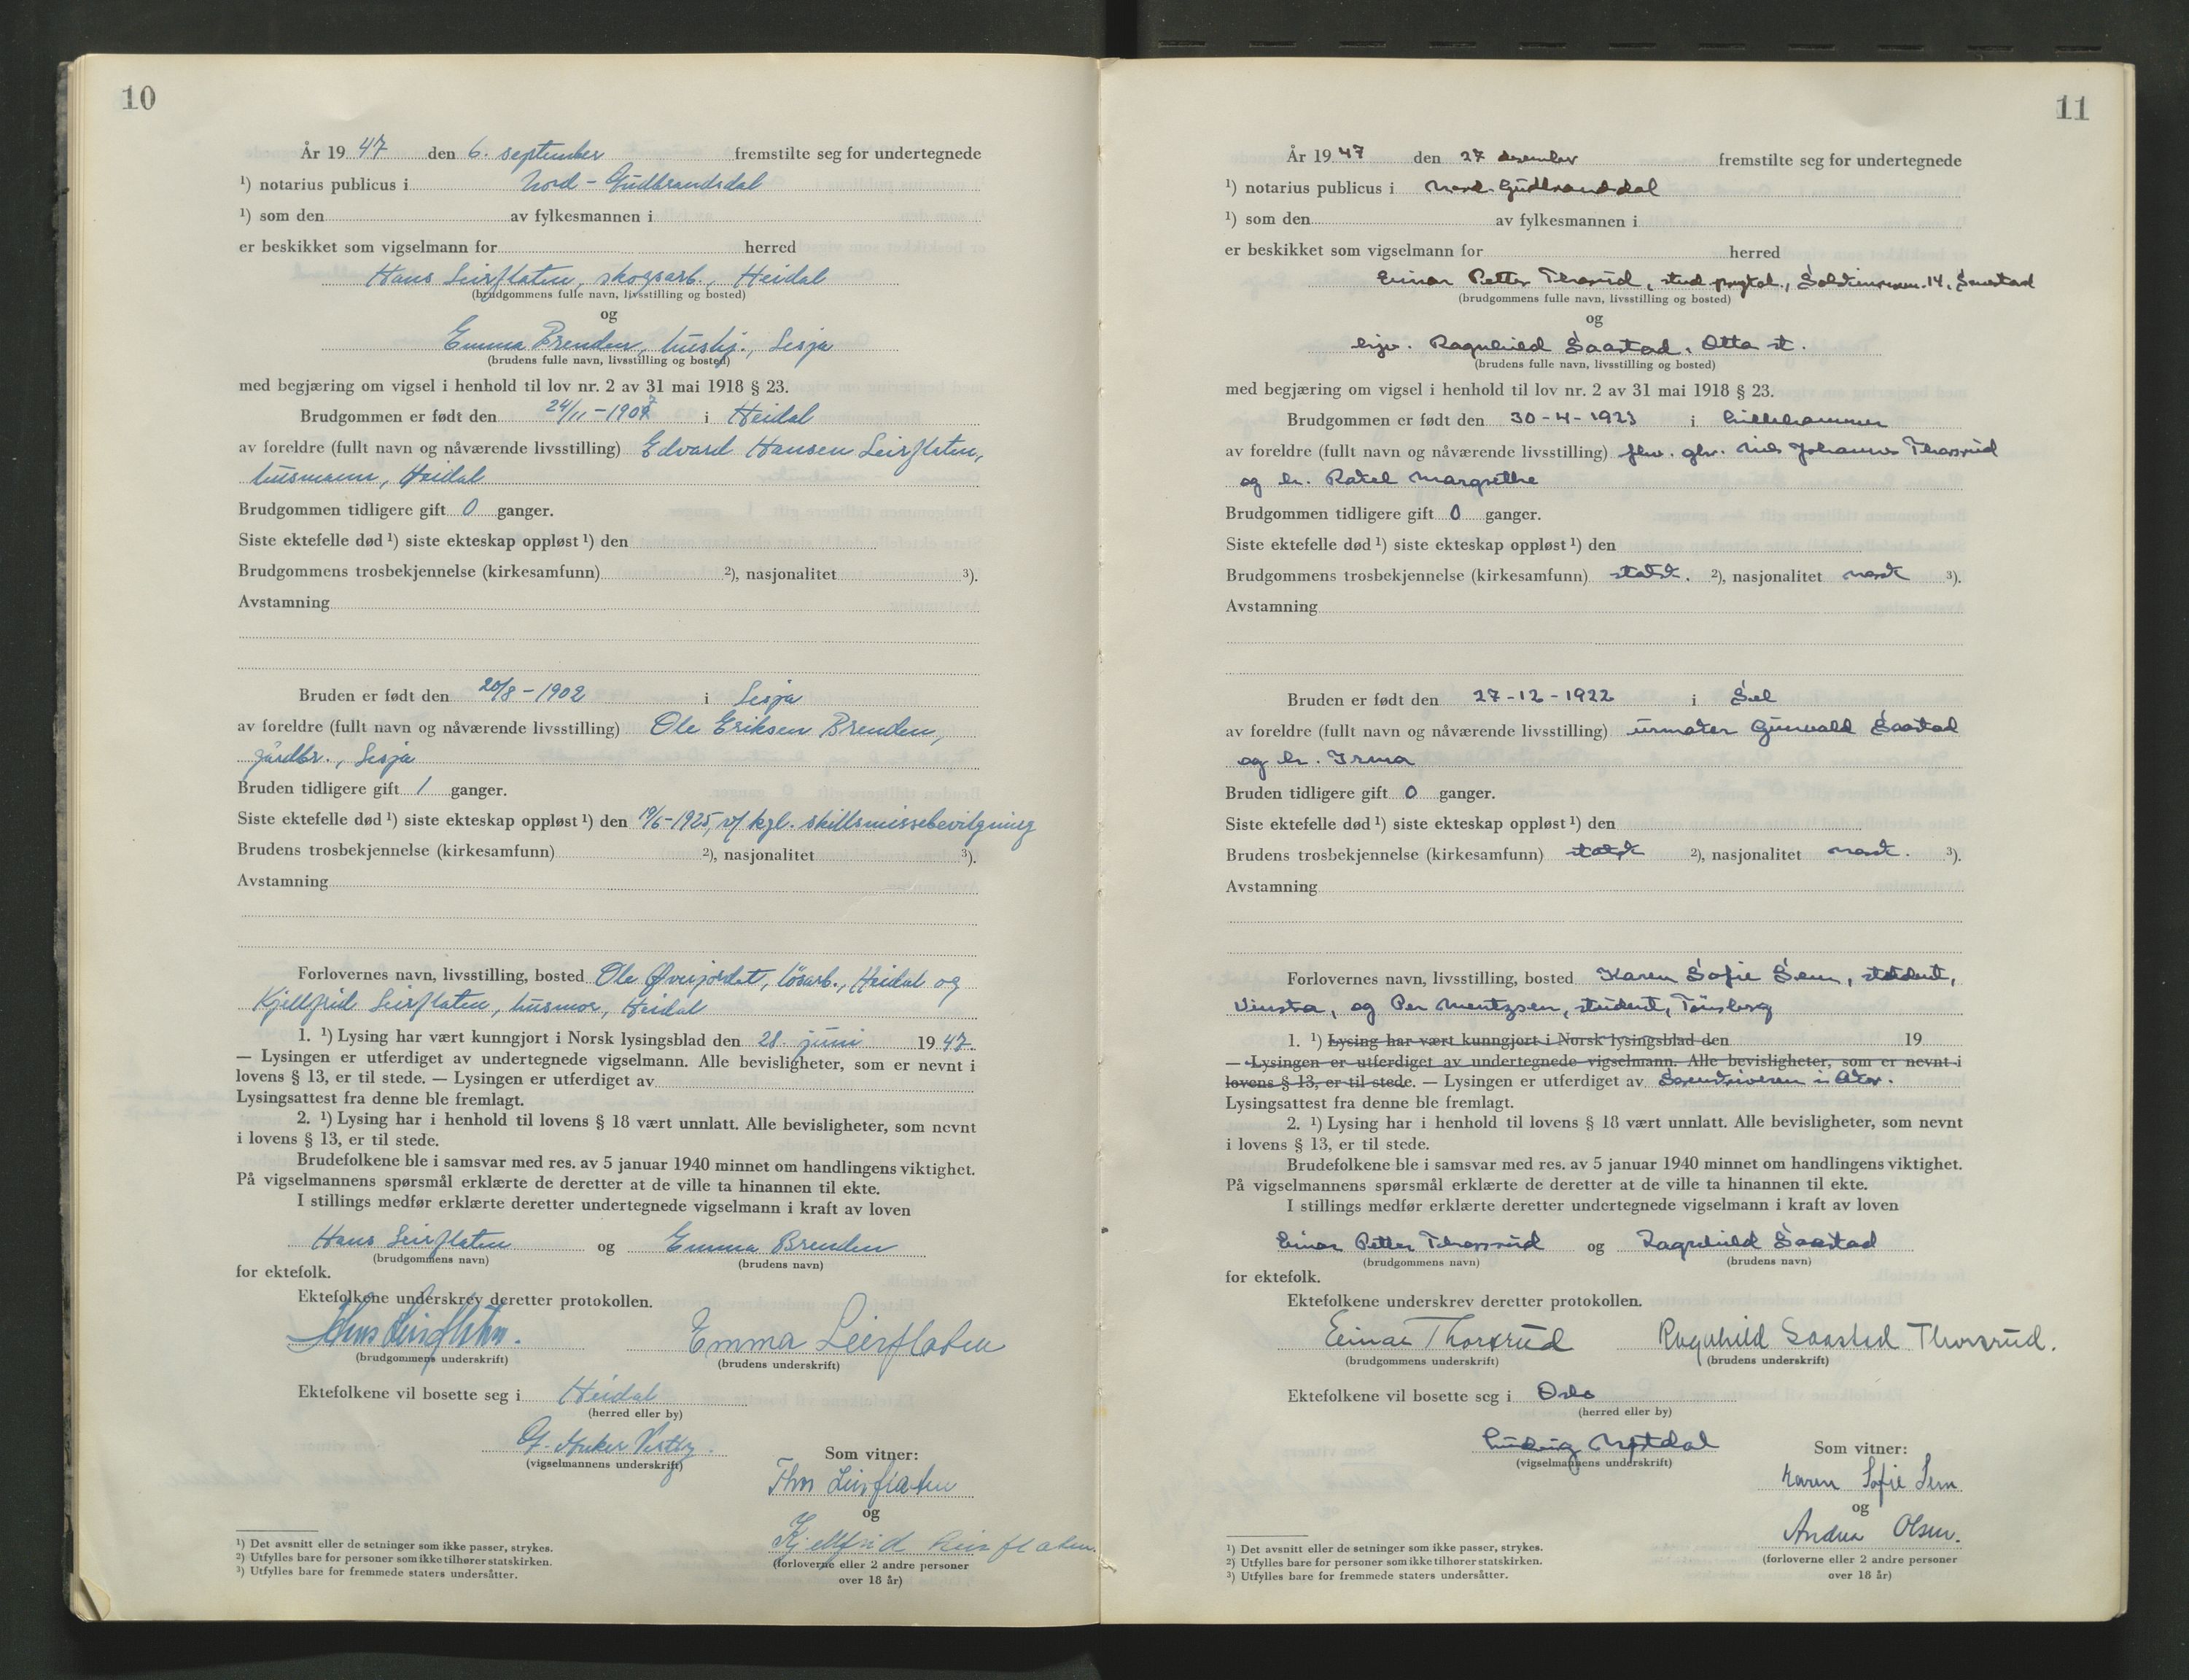 10
År 19 47 den 6. september fremstilte seg for undertegnede
¹) notarius publicus i Nord-Gudbrandsdal
¹) som den av fylkesmannen i
er beskikket som vigselmann for herred
Hans Leirflaten, skogsarb., Heidal
(brudgommens fulle navn, livsstilling og bosted)
og
Emma Brenden, hushj., Lesja
(brudens fulle navn, livsstilling og bosted)
med begjæring om vigsel i henhold til lov nr. 2 av 31 mai 1918 § 23.
Brudgommen er født den 24/11-190 i Heidal
av foreldre (fullt navn og nåværende livsstilling) Edvard Hansen Leirflaten,
husmann, Heidal
Brudgommen tidligere gift 0 ganger.
Siste ektefelle død ¹) siste ekteskap oppløst ¹) den
Brudgommens trosbekjennelse (kirkesamfunn) ²), nasjonalitet ³).
Avstamning
Bruden er født den 20/8-1902 i Lesja
av foreldre (fullt navn og nåværende livsstilling) Ole Eriksen Brenden,
gårdbr., Lesja
Bruden tidligere gift 1 ganger.
Siste ektefelle død ¹) siste ekteskap oppløst ¹) den 19/6-1925, v/ kgl. skillsmissebevilgning
Brudens trosbekjennelse (kirkesamfunn) ²), nasjonalitet ³).
Avstamning
Forlovernes navn, livsstilling, bosted Ole Øverjordet, lösarb., Heidal og
Kjellfrid Leirflaten, husmor, Heidal
1. ¹) Lysing har vært kunngjort i Norsk lysingsblad den 28. juni 19 47.
— Lysingen er utferdiget av undertegnede vigselmann. Alle bevisligheter, som er nevnt i
lovens § 13, er til stede. — Lysingen er utferdiget av
Lysingsattest fra denne ble fremlagt.
2. ¹) Lysing har i henhold til lovens § 18 vært unnlatt. Alle bevisligheter, som nevnt
i lovens § 13, er til stede.
Brudefolkene ble i samsvar med res. av 5 januar 1940 minnet om handlingens viktighet.
På vigselmannens spørsmål erklærte de deretter at de ville ta hinannen til ekte.
I stillings medfør erklærte deretter undertegnede vigselmann i kraft av loven
Hans Leirflaten og Emma Brenden
(brudgommens navn) (brudens navn)
for ektefolk.
Ektefolkene underskrev deretter protokollen.
Hans Leirflaten. Emma Leirflaten
(brudgommens underskrift) (brudens underskrift)
Ektefolkene vil bosette seg i Heidal
(herred eller by)
(vigselmannens underskrift)
Som vitner:
Leirflaten
og
Kjellfrid Leirflaten.
(forloverne eller 2 andre personer
over 18 år)
¹) Det avsnitt eller de setninger som ikke passer, strykes.
²) Utfylles bare for personer som ikke tilhører statskirken.
³) Utfylles bare for fremmede staters undersåtter.
11
År 19 47 den 27 desember fremstilte seg for undertegnede
¹) notarius publicus i Nord-Gudbrandsdal
¹) som den av fylkesmannen i
er beskikket som vigselmann for herred
Einar Petter Thorsrud, stud. 14,
(brudgommens fulle navn, livsstilling og bosted)
og
Ragnhild Saastad, Otta st.
(brudens fulle navn, livsstilling og bosted)
med begjæring om vigsel i henhold til lov nr. 2 av 31 mai 1918 § 23.
Brudgommen er født den 30-4-1923 i Lillehammer
av foreldre (fullt navn og nåværende livsstilling) Nils Johannes Thorsrud
og h. Rakel Margrethe
Brudgommen tidligere gift 0 ganger.
Siste ektefelle død ¹) siste ekteskap oppløst ¹) den
Brudgommens trosbekjennelse (kirkesamfunn) statsk. ²), nasjonalitet norsk ³).
Avstamning
Bruden er født den 27-12-1922 i Sel
av foreldre (fullt navn og nåværende livsstilling) urmaker Gunvald Saastad
og h. Irma
Bruden tidligere gift 0 ganger.
Siste ektefelle død ¹) siste ekteskap oppløst ¹) den
Brudens trosbekjennelse (kirkesamfunn) statsk ²), nasjonalitet norsk. ³).
Avstamning
Forlovernes navn, livsstilling, bosted Karen Sofie Sem, student,
Vinstra, og Per Mentzsen, student, Tønsberg
1. ¹) Lysing har vært kunngjort i Norsk lysingsblad den 19
— Lysingen er utferdiget av undertegnede vigselmann. Alle bevisligheter, som er nevnt i
lovens § 13, er til stede. — Lysingen er utferdiget av Sorenskriveren i Aker.
Lysingsattest fra denne ble fremlagt.
2. ¹) Lysing har i henhold til lovens § 18 vært unnlatt. Alle bevisligheter, som nevnt
i lovens § 13, er til stede.
Brudefolkene ble i samsvar med res. av 5 januar 1940 minnet om handlingens viktighet.
På vigselmannens spørsmål erklærte de deretter at de ville ta hinannen til ekte.
I stillings medfør erklærte deretter undertegnede vigselmann i kraft av loven
Einar Petter Thorsrud og Ragnhild Saastad
(brudgommens navn) (brudens navn)
for ektefolk.
Ektefolkene underskrev deretter protokollen.
Einar Thorsrud Ragnhild Saastad Thorsrud.
(brudgommens underskrift) (brudens underskrift)
Ektefolkene vil bosette seg i Oslo
(herred eller by)
Ludvig
(vigselmannens underskrift)
Som vitner:
Karen Sofie Sem
og
Andrea Olsen.
(forloverne eller 2 andre personer
over 18 år)
¹) Det avsnitt eller de setninger som ikke passer, strykes.
²) Utfylles bare for personer som ikke tilhører statskirken.
³) Utfylles bare for fremmede staters undersåtter.